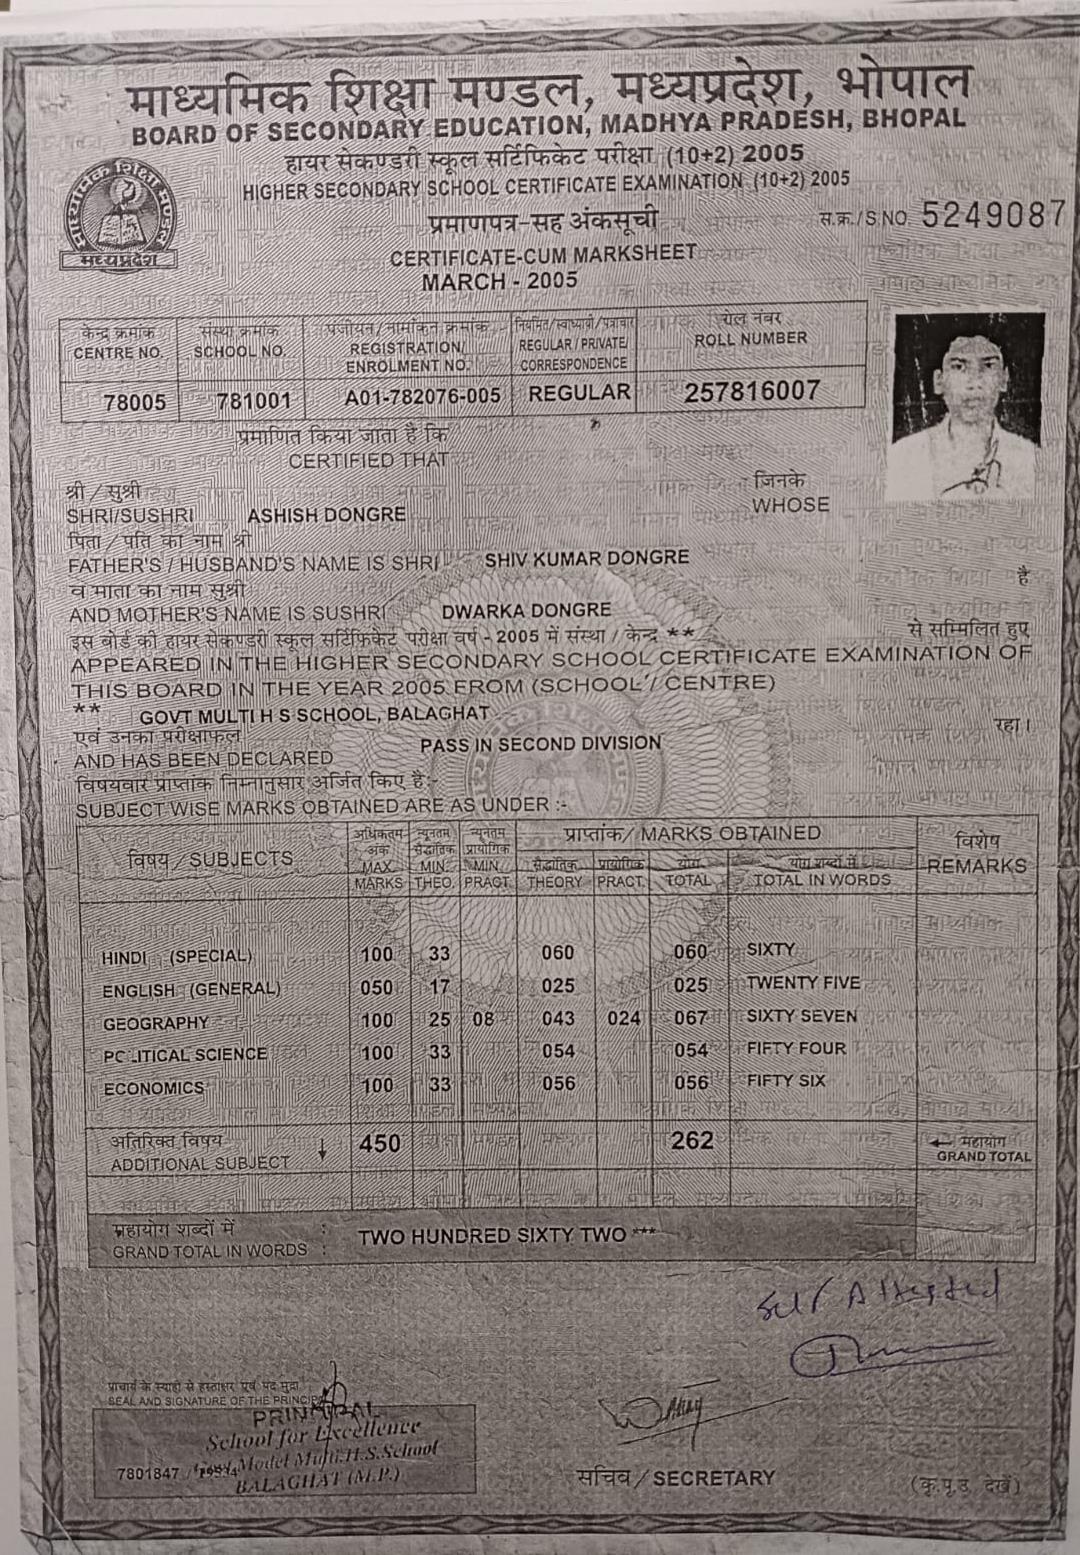 माध्यमिक शिक्षा मण्डल, मध्यप्रदेश, भोपाल
BOARD OF SECONDARY EDUCATION, MADHYA PRADESH, BHOPAL
हायर सेकण्डरी स्कूल सर्टिफिकेट परीक्षा (10+2) 2005
HIGHER SECONDARY SCHOOL CERTIFICATE EXAMINATION (10+2) 2005
माध्यमिक शिक्षा मण्डल
मध्यप्रदेश
प्रमाणपत्र-सह अंकसूची
स.क्र./S NO. 5249087
CERTIFICATE-CUM MARKSHEET
MARCH - 2005
केन्द्र क्रमांक संस्था क्रमांक पंजीयन/नामांकन क्रमांक नियमित/स्वाध्यायी/पत्राचार रोल नंबर
CENTRE NO. SCHOOL NO. REGISTRATION/ ENROLMENT NO. REGULAR / PRIVATE/ CORRESPONDENCE ROLL NUMBER
78005 781001 A01-782076-005 REGULAR 257816007
प्रमाणित किया जाता है कि
CERTIFIED THAT
श्री / सुश्री जिनके
SHRI/SUSHRI ASHISH DONGRE WHOSE
पिता / पति का नाम श्री
FATHER'S / HUSBAND'S NAME IS SHRI SHIV KUMAR DONGRE
व माता का नाम सुश्री है
AND MOTHER'S NAME IS SUSHRI DWARKA DONGRE
इस बोर्ड की हायर सेकण्डरी स्कूल सर्टिफिकेट परीक्षा वर्ष - 2005 में संस्था / केन्द्र ** से सम्मिलित हुए
APPEARED IN THE HIGHER SECONDARY SCHOOL CERTIFICATE EXAMINATION OF
THIS BOARD IN THE YEAR 2005 FROM (SCHOOL / CENTRE)
** GOVT MULTI H S SCHOOL, BALAGHAT
एवं उनका परीक्षाफल रहा।
AND HAS BEEN DECLARED PASS IN SECOND DIVISION
विषयवार प्राप्तांक निम्नानुसार अर्जित किए है:-
SUBJECT WISE MARKS OBTAINED ARE AS UNDER :-
विषय / SUBJECTS अधिकतम अंक MAX. MARKS न्यूनतम सैद्धांतिक MIN. THEO. न्यूनतम प्रायोगिक MIN. PRACT. प्राप्तांक/ MARKS OBTAINED विशेष REMARKS
सैद्धांतिक THEORY प्रायोगिक PRACT. योग TOTAL योग शब्दों में TOTAL IN WORDS
HINDI (SPECIAL) 100 33 060 060 SIXTY
ENGLISH (GENERAL) 050 17 025 025 TWENTY FIVE
GEOGRAPHY 100 25 08 043 024 067 SIXTY SEVEN
POLITICAL SCIENCE 100 33 054 054 FIFTY FOUR
ECONOMICS 100 33 056 056 FIFTY SIX
अतिरिक्त विषय ↓ 450 262 ← महायोग
ADDITIONAL SUBJECT GRAND TOTAL
महायोग शब्दों में :
GRAND TOTAL IN WORDS : TWO HUNDRED SIXTY TWO ***
Self Attested
प्राचार्य के स्याही से हस्ताक्षर एवं पद मुद्रा
SEAL AND SIGNATURE OF THE PRINCIPAL
PRINCIPAL
School for Excellence
Govt. Model Multi.H.S.School
7801847
BALAGHAT (M.P.)
सचिव / SECRETARY
(कृ.पृ.उ. देखें)